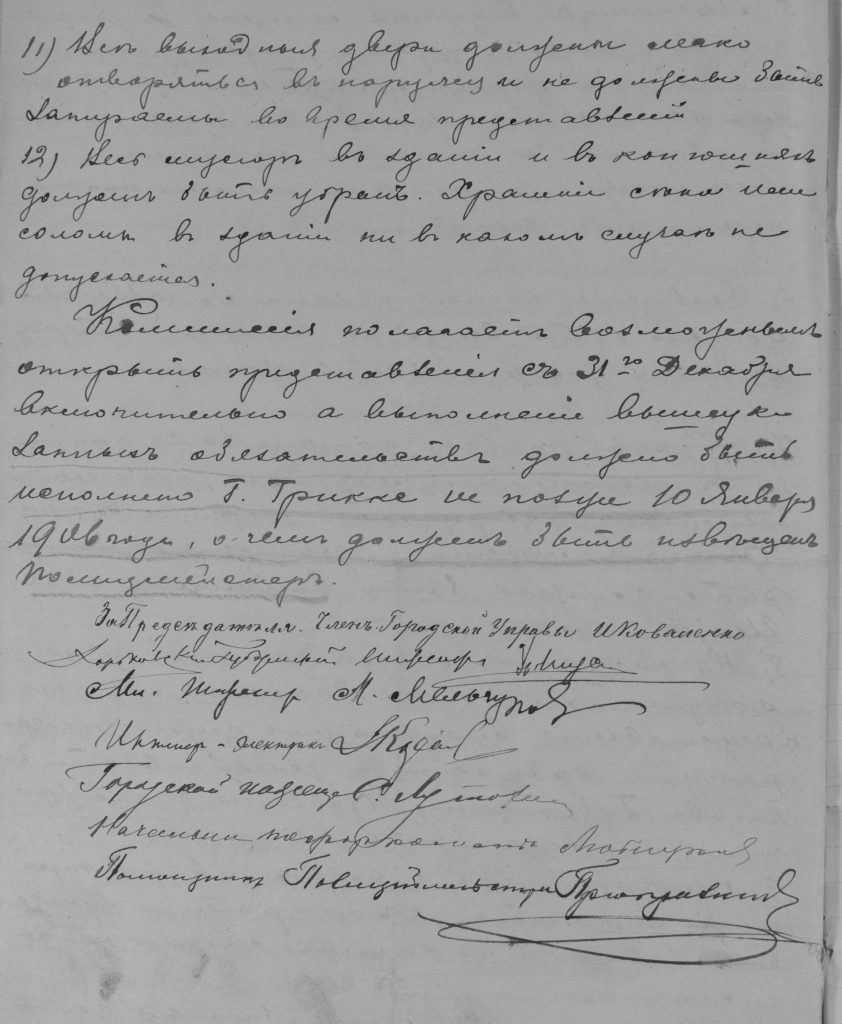 11) Всѣ выходныя двери должны легко
отворяться въ наружу и не должны быть
запираемы во время представленій
12) Весь мусоръ въ зданіи и въ конюшняхъ
долженъ быть убранъ. Храненіе сѣна или
соломы въ зданіи ни въ какомъ случаѣ не
допускается.
Коммиссія полагаетъ возможнымъ
открыть представленія съ 31го Декабря
включительно а выполненіе вышеука-
занныхъ обязательствъ должно быть
исполнено Г. Грикке не позже 10 Января
1906 года, о чемъ долженъ быть извѣщенъ
Полицмейстеръ.
За Предсѣдателя. Членъ Городской Управы И Коваленко
Харьковскій Губернскій Инженеръ
Мл. Инженеръ М.
Инженеръ-электрикъ
Городской
Начальникъ
Помощникъ Полицеймейстера